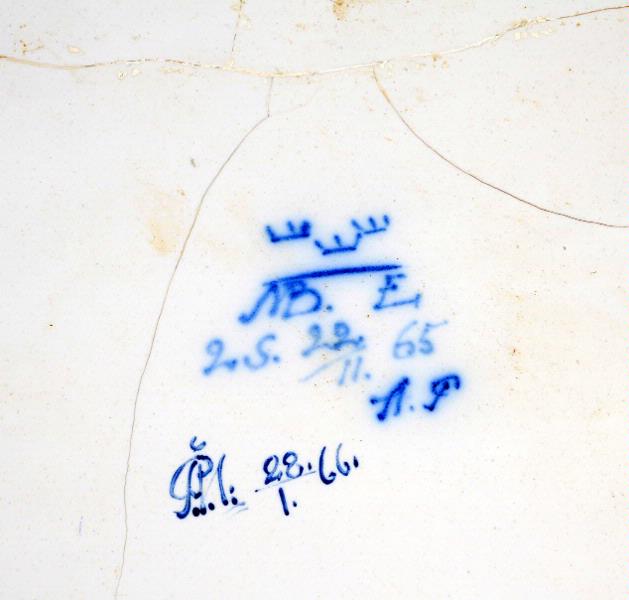 MB. E,
2.S. 22./11. 65
A.P
28./1. 66.